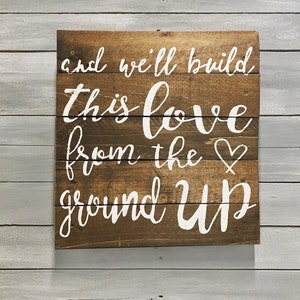 and we'll build
this love
from the
ground UP